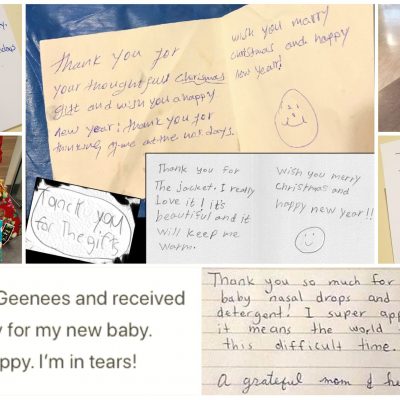 Thank you for
your thoughtfull Chrismas
gift and wish you a happy
new year! thank you for
thinking of me at the holidays.
wish you marry
christmas and happy
new year!
Thank you for
The jacket. I really
Love it! it's
beautiful and it
will keep me
warm.
wish you merry
Christmas and
happy new year!!
Tanck you
for The gifts
Geenees and received
for my new baby.
I'm in tears!
Thank you so much for
baby nasal drops and
detergent! I super
it means the world
this difficult time.
A grateful mom &